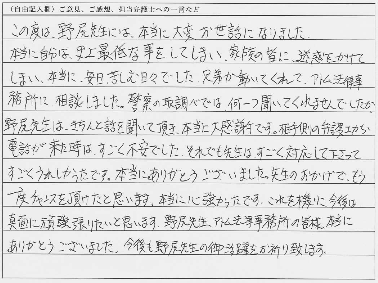 (自由記入欄)ご意見、ご感想、担当弁護士への一言など
この度は、野尻先生には、本当に大変お世話になりました。
本当に自分は、史上最低な事をしてしまい、家族の皆に、迷惑をかけて
しまい、本当に、毎日苦しむ日々でした。兄弟が動いてくれて、アトム法律事
務所に相談しました。警察の取調べでは、何一つ聞いてくれませんでしたが、
野尻先生は、きちんと話を聞いて頂き、本当に大感謝です。相手側の弁護士から
電話が来た時は、すごく不安でした。それでも先生は、すごく対応して下さって
すごくうれしかったです。本当にありがとうございました。先生のおかげで、もう
一度チャンスを頂けたと思います。本当に心強かったです。これを機に、今後は
真面に頑張張りたいと思います。野尻先生、アトム法律事務所の皆様、本当に
ありがとうございました。今後も野尻先生の御活躍をお祈り致します。